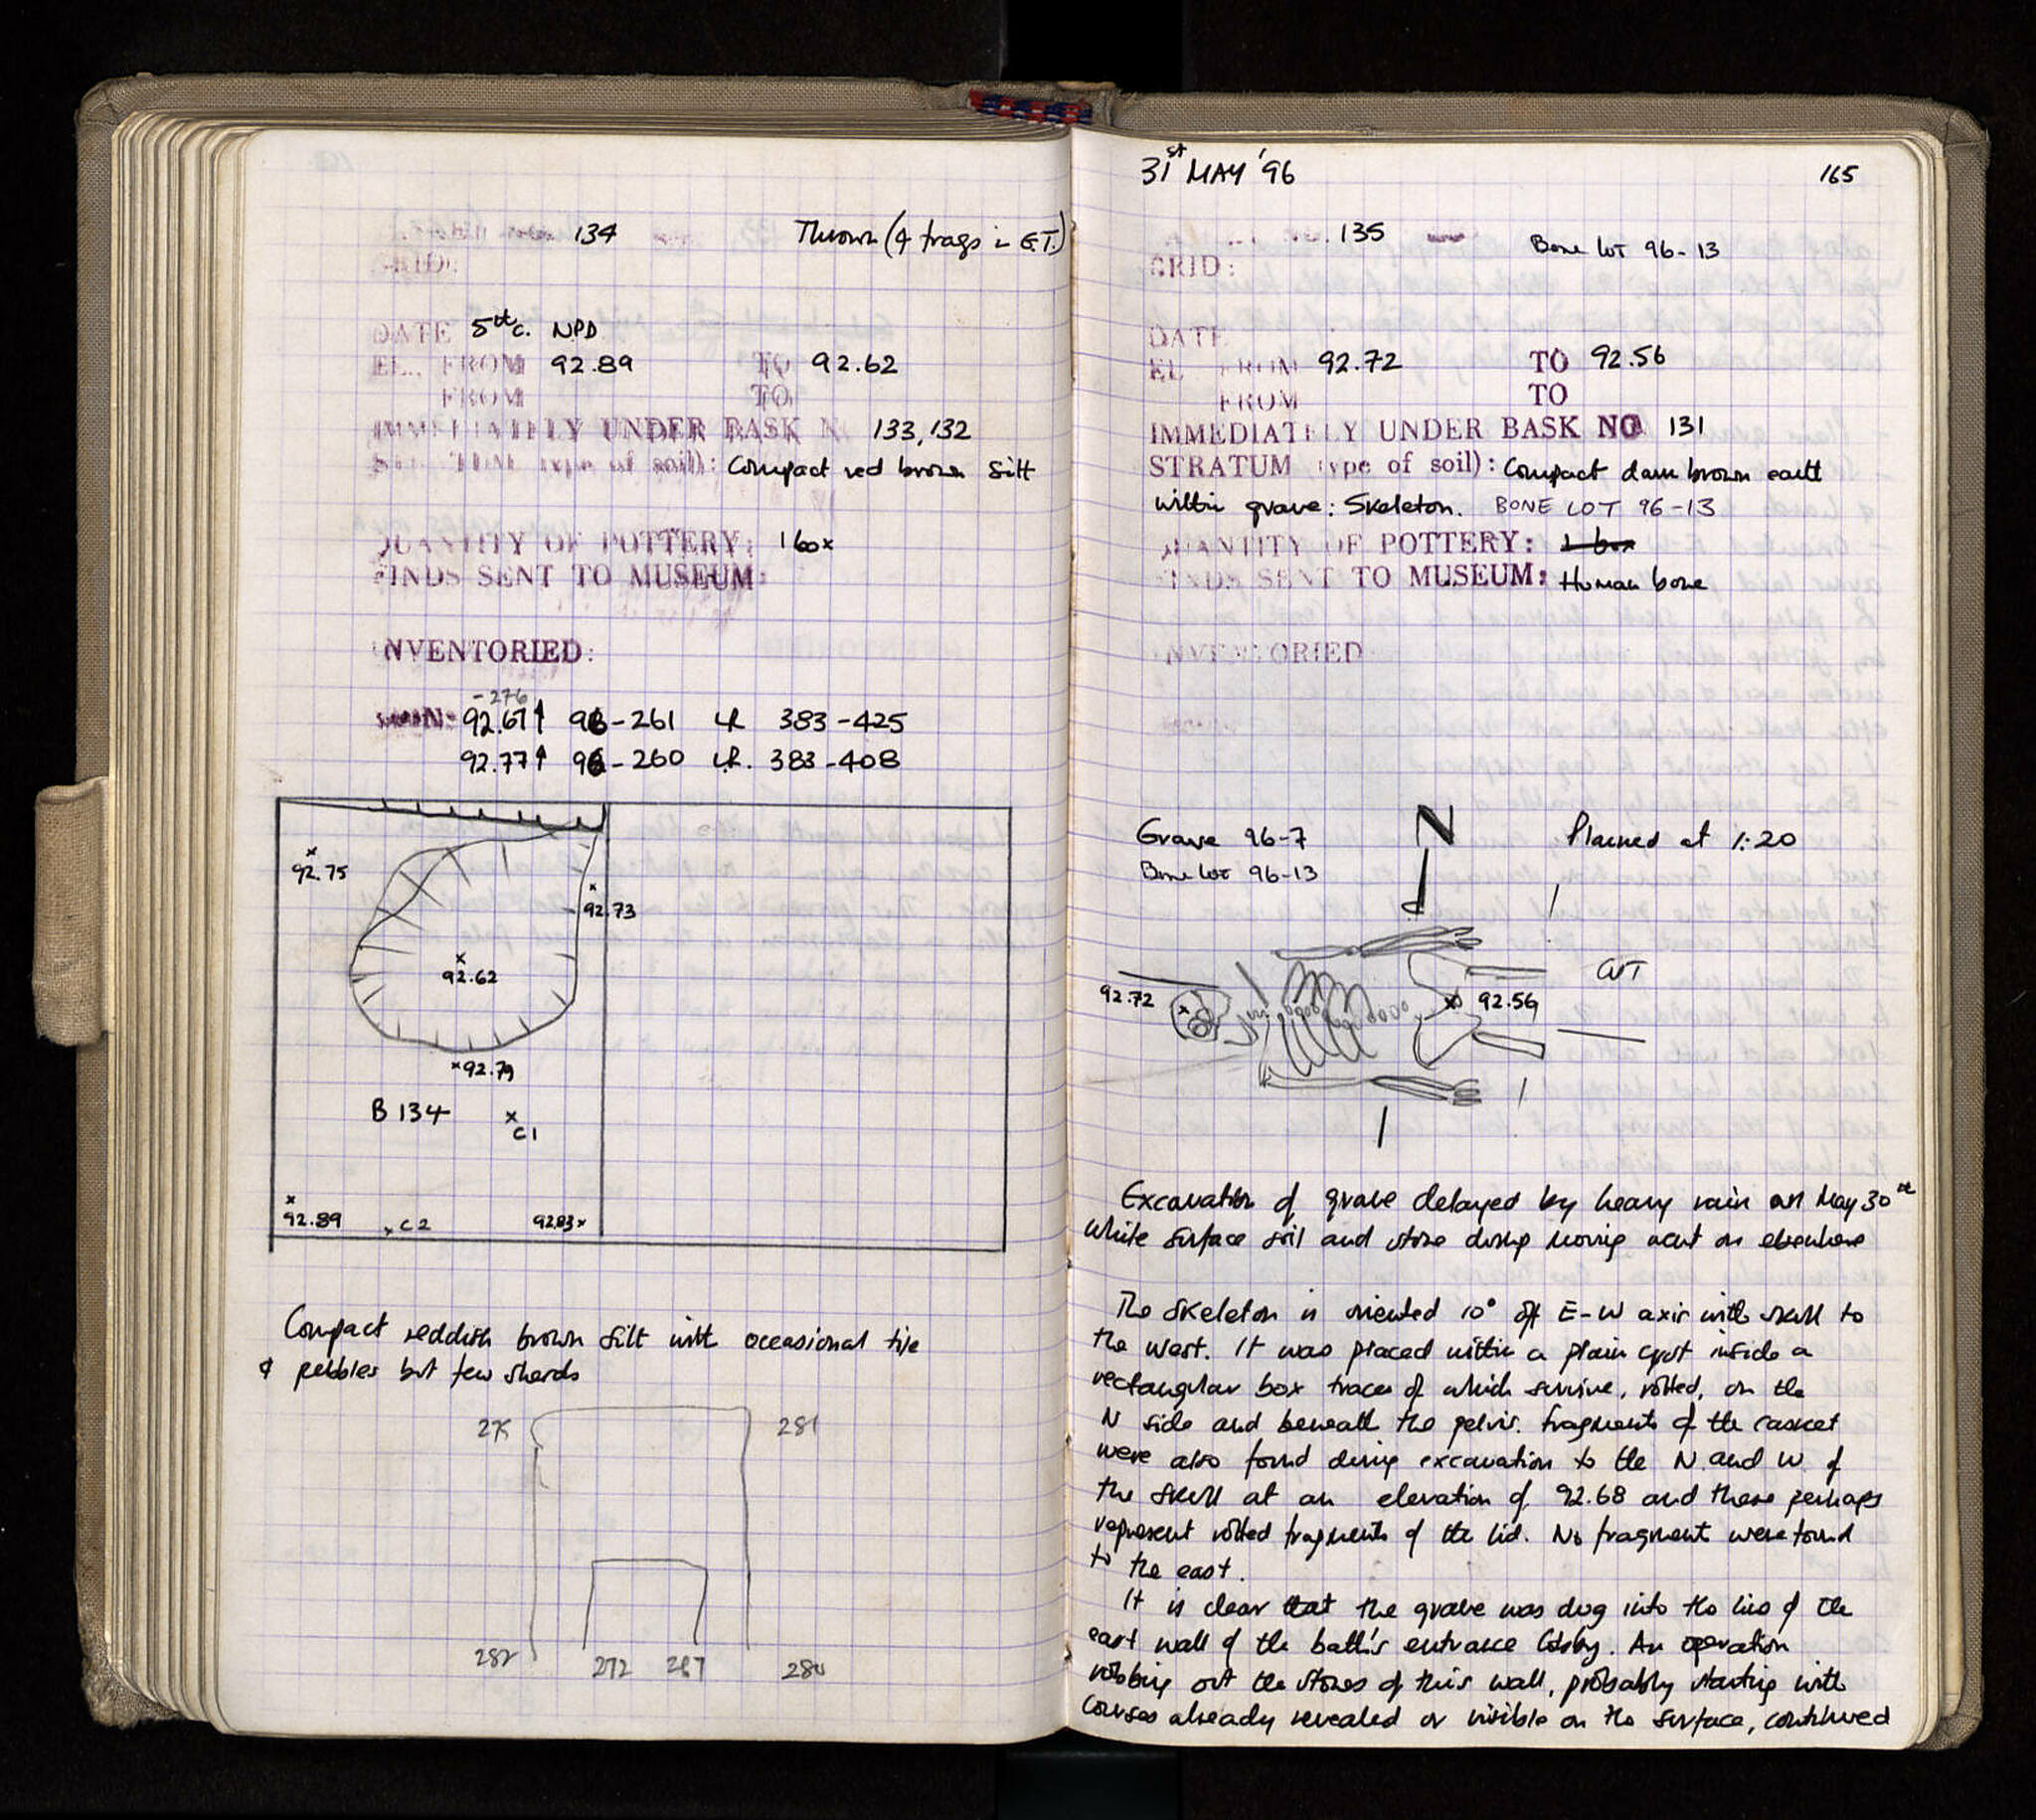 134 Thrown (4 frags in G.T.)
GRID:
DATE 5th c. NPD
EL. FROM 92.89 TO 92.62
FROM TO
IMMEDIATELY UNDER BASK N 133, 132
(type of soil): Compact red brown silt
QUANTITY OF POTTERY: 1 box
FINDS SENT TO MUSEUM:
INVENTORIED:
-276
92.67↑ 96-261 LR 383-425
92.77↑ 96-260 LR. 383-408
92.75
92.73
92.62
92.79
B 134 C1
92.89 C2 92.83
Compact reddish brown silt with occasional tile
& pebbles but few sherds
281
282 272 267 280
31st MAY '96 165
NO. 135 Bone lot 96-13
GRID:
DATE
EL FROM 92.72 TO 92.56
FROM TO
IMMEDIATELY UNDER BASK NO 131
STRATUM (type of soil): Compact dark brown earth
within grave: Skeleton. BONE LOT 96-13
QUANTITY OF POTTERY: 1 box
FINDS SENT TO MUSEUM: Human bone
INVENTORIED
Grave 96-7 N Planned at 1:20
Bone lot 96-13
CUT
92.72 92.56
Excavation of grave delayed by heavy rain on May 30th
while surface soil and stone dump moving went on elsewhere
The skeleton is oriented 10° off E-W axis with skull to
the west. It was placed within a plain cyst inside a
rectangular box traces of which survive, rotted, on the
N side and beneath the pelvis. Fragments of the casket
were also found during excavation to the N and W of
the skull at an elevation of 92.68 and these perhaps
represent rotted fragments of the lid. No fragment were found
to the east.
It is clear that the grave was dug into the line of the
east wall of the bath's entrance lobby. An operation
robbing out the stones of this wall, probably starting with
courses already revealed or visible on the surface, continued